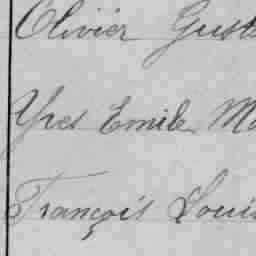 Olivier Gust
Yves Emile Ma
François Louis